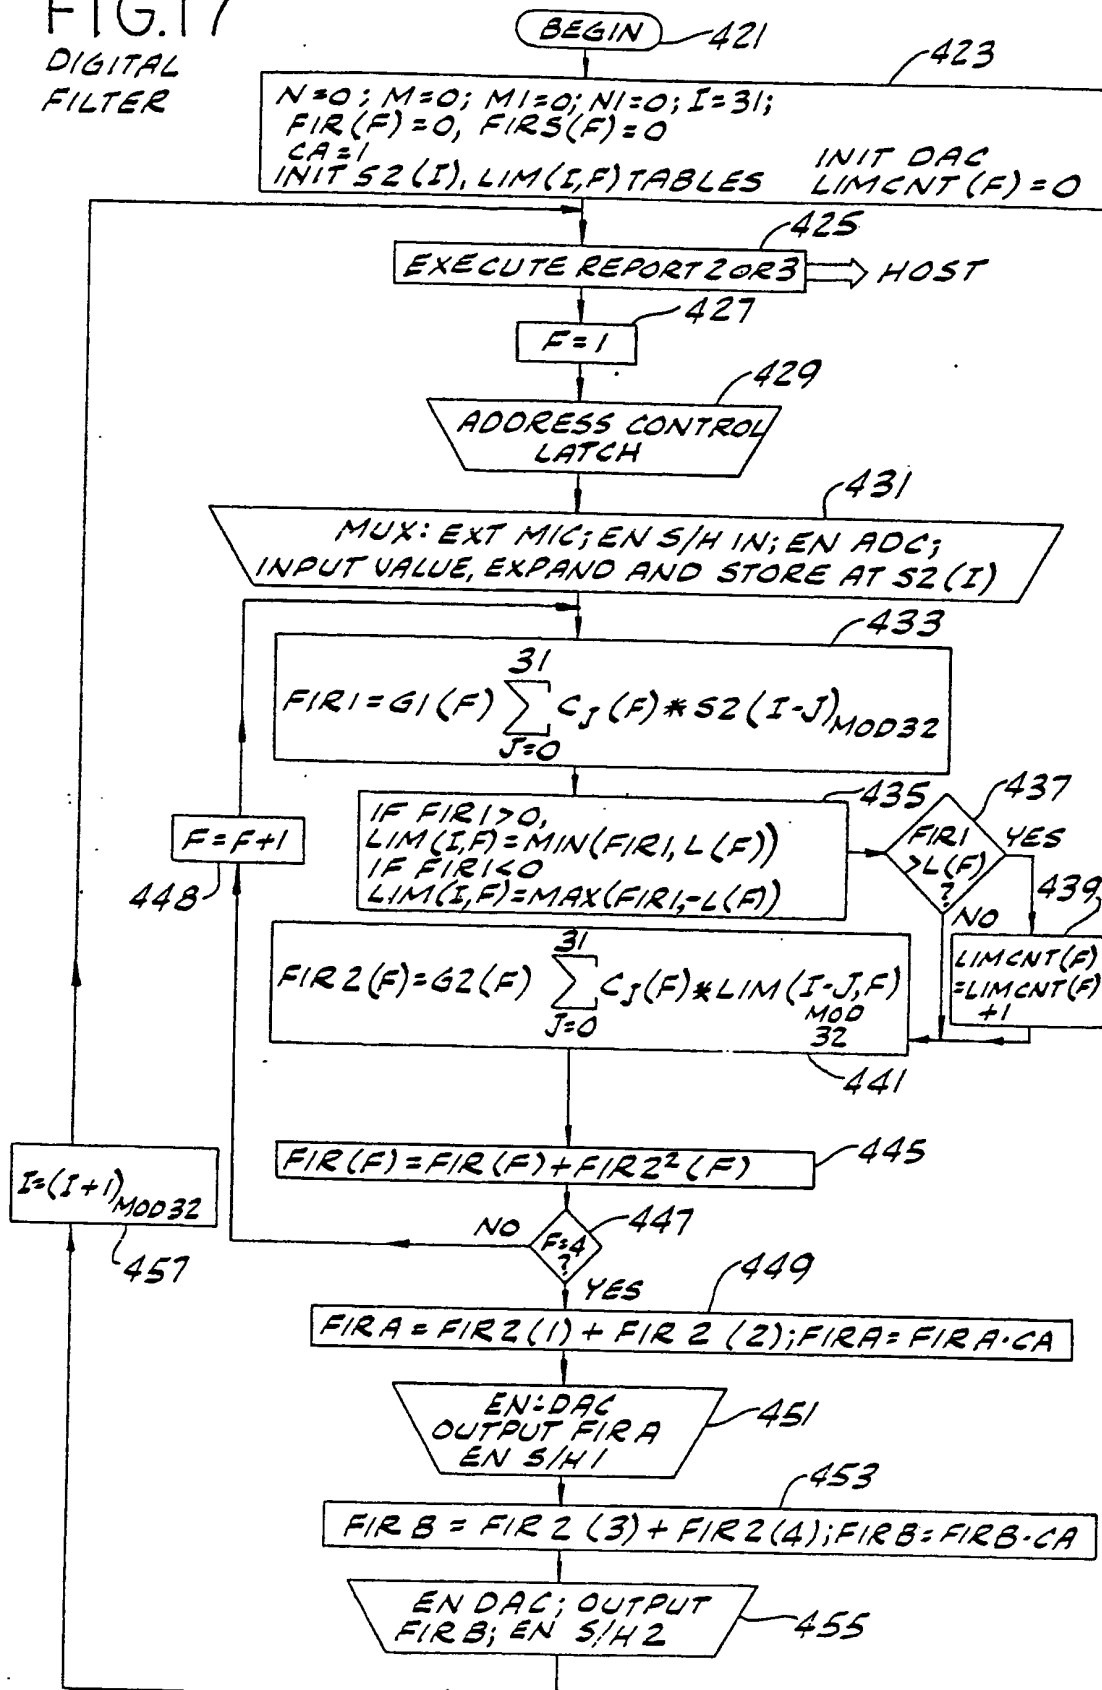 FIG.17
DIGITAL
FILTER
BEGIN
421
423
N=0; M=0; M1=0; N1=0; I=31;
FIR(F)=0, FIRS(F)=0
CA=1
INIT S2(I), LIM(I,F) TABLES
INIT DAC
LIMCNT(F)=0
425
EXECUTE REPORT 2 OR 3
HOST
427
F=1
429
ADDRESS CONTROL
LATCH
431
MUX: EXT MIC; EN S/H IN; EN ADC;
INPUT VALUE, EXPAND AND STORE AT S2(I)
433
31
FIR1=G1(F) ∑ CJ(F)*S2(I-J)MOD32
J=0
435
IF FIR1>0,
LIM(I,F)=MIN(FIR1, L(F))
IF FIR1<0
LIM(I,F)=MAX(FIR1,-L(F))
437
FIR1
>L(F)
?
YES
NO
439
LIMCNT(F)
=LIMCNT(F)
+1
F=F+1
448
31
FIR2(F)=G2(F) ∑ CJ(F)*LIM(I-J,F)
J=0
MOD
32
441
FIR(F)=FIR(F)+FIR2²(F)
445
I=(I+1)MOD32
457
NO
F=4
?
447
YES
449
FIRA=FIR2(1)+FIR2(2);FIRA=FIRA·CA
EN:DAC
OUTPUT FIRA
EN S/H1
451
453
FIRB=FIR2(3)+FIR2(4);FIRB=FIRB·CA
EN DAC; OUTPUT
FIRB; EN S/H2
455